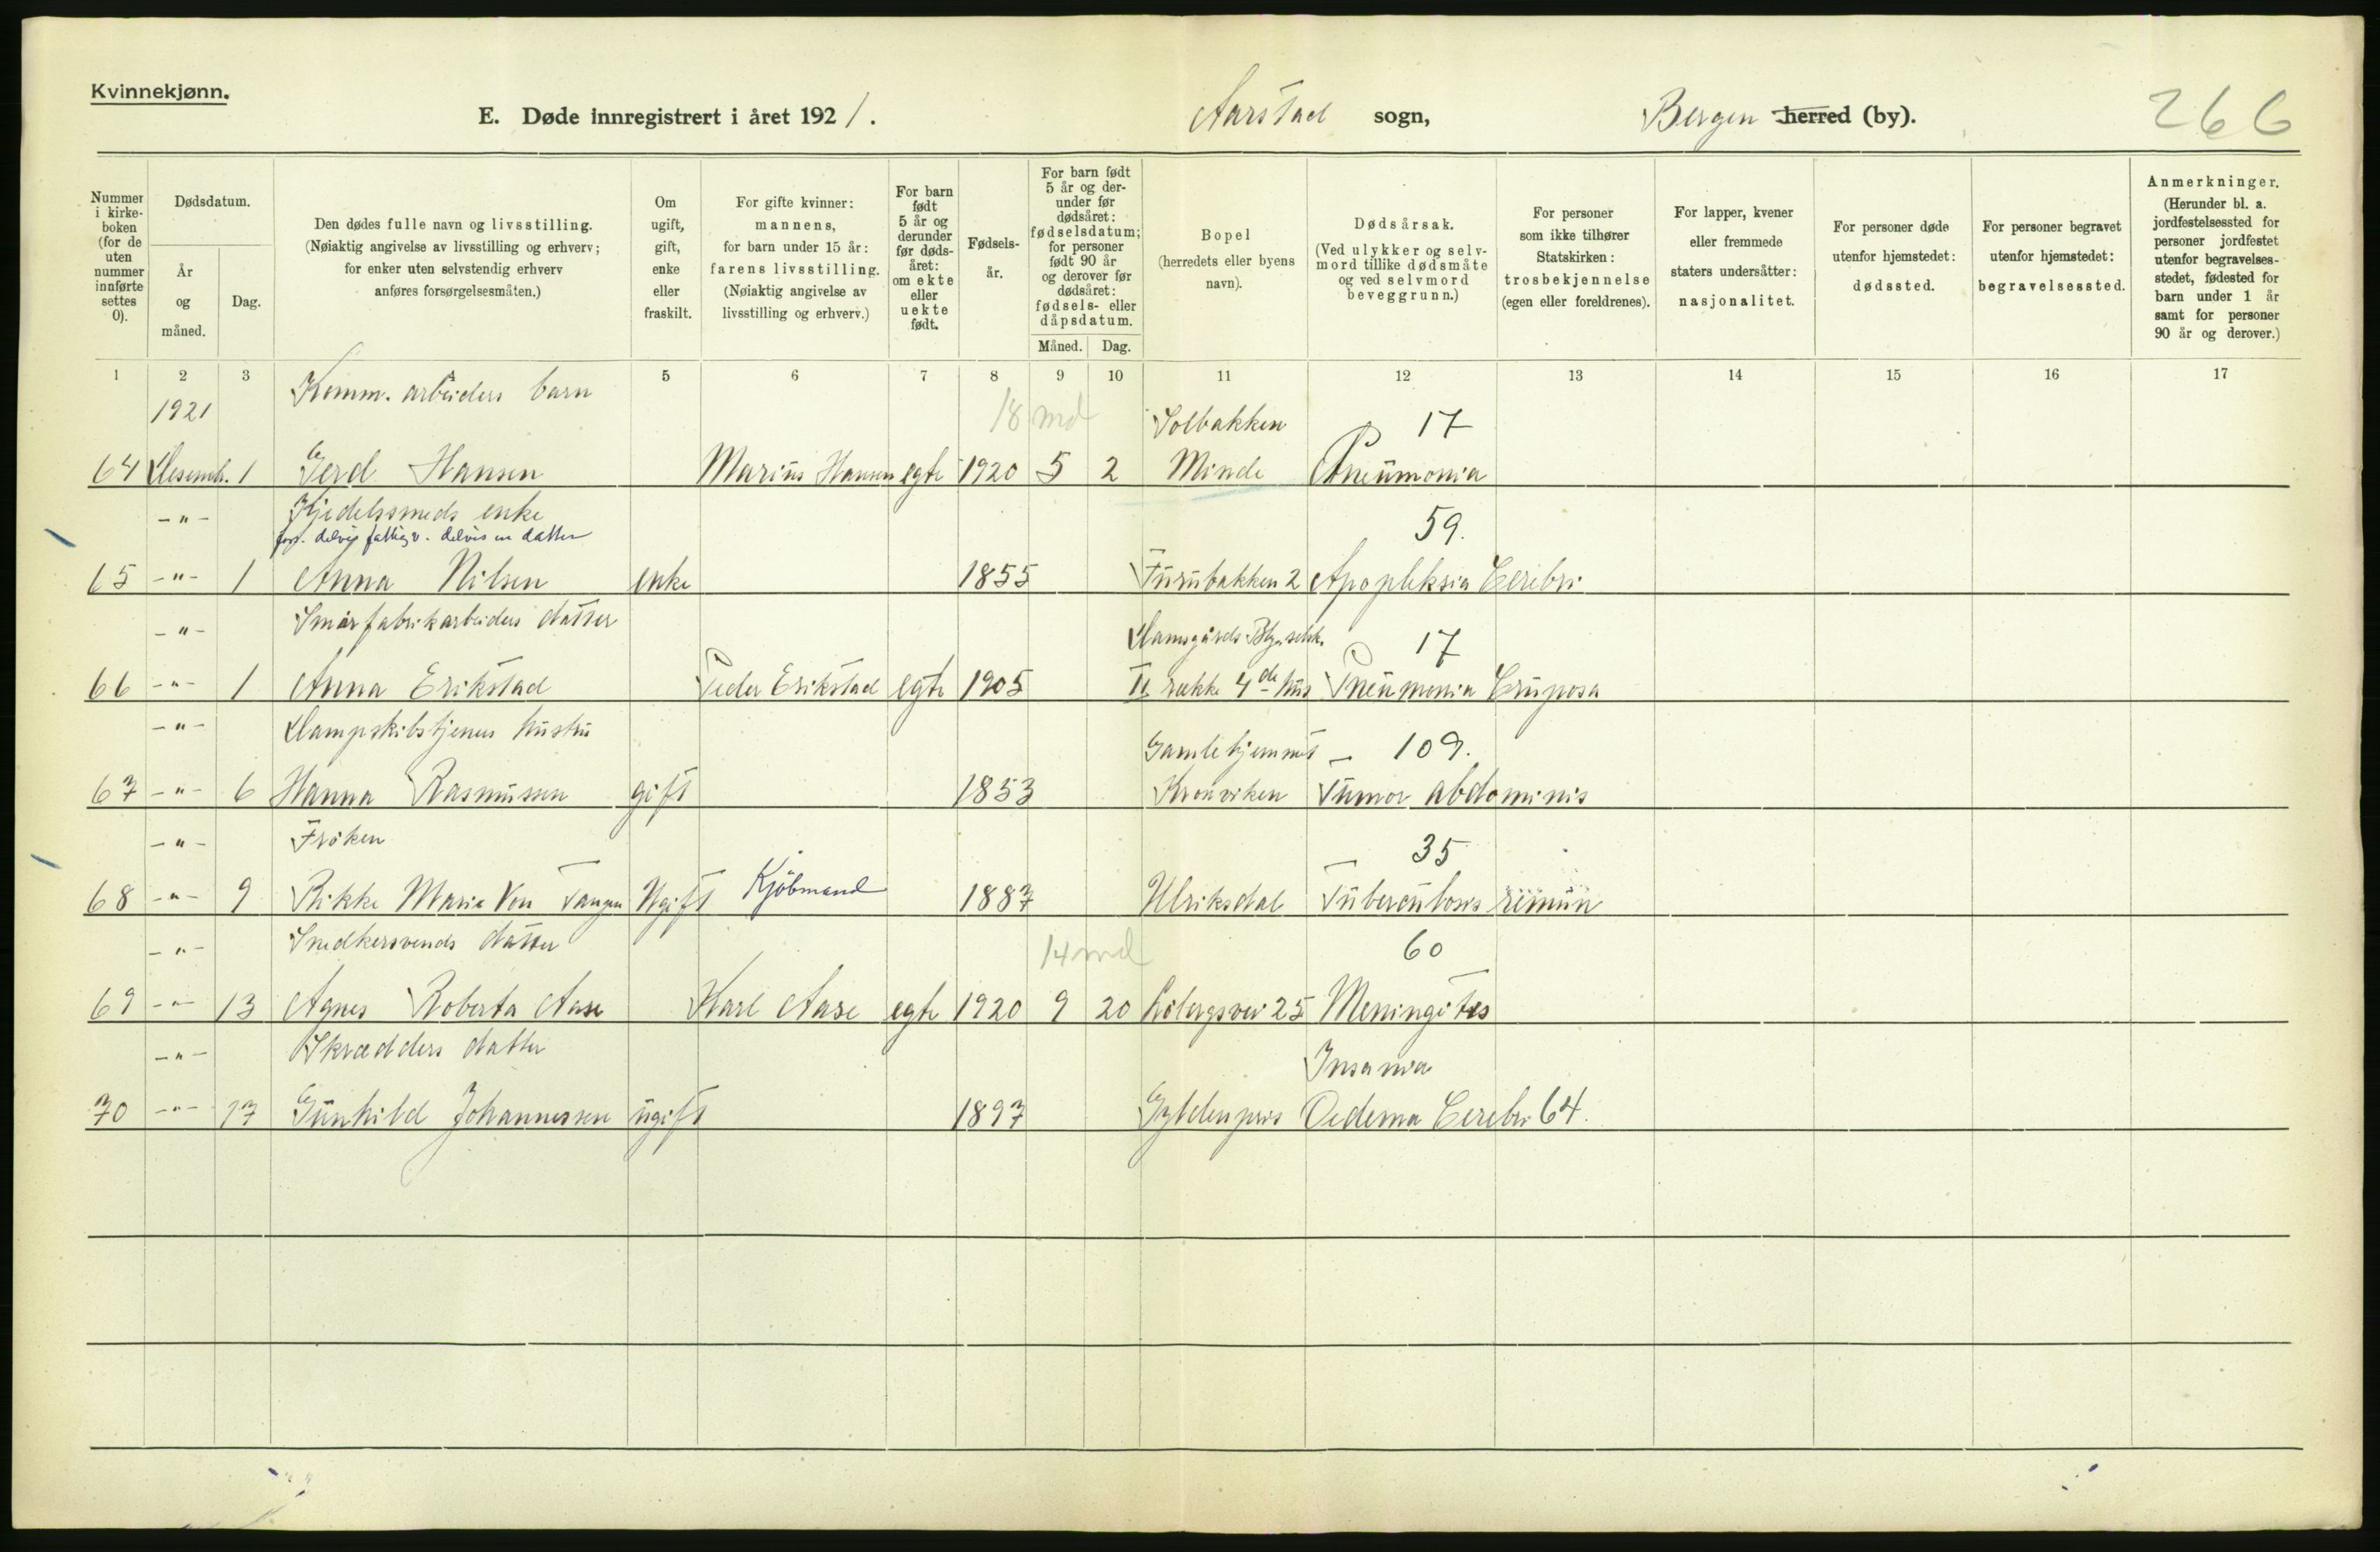 Kvinnekjønn.
E. Døde innregistrert i året 1921. Aarstad sogn, Bergen herred (by). 266
Nummer i kirke-boken (for de uten nummer innførte settes 0).
Dødsdatum.
År og måned.
Dag.
Den dødes fulle navn og livsstilling.
(Nøiaktig angivelse av livsstilling og erhverv;
for enker uten selvstendig erhverv
anføres forsørgelsesmåten.)
Om ugift, gift, enke eller fraskilt.
For gifte kvinner:
mannens,
for barn under 15 år:
farens livsstilling.
(Nøiaktig angivelse av
livsstilling og erhverv.)
For barn født 5 år og derunder før døds-året: om ekte eller uekte født.
Fødsels-år.
For barn født 5 år og der-under før dødsåret: fødselsdatum; for personer født 90 år og derover før dødsåret: fødsels- eller dåpsdatum.
Måned. Dag.
Bopel
(herredets eller byens
navn).
Dødsårsak.
(Ved ulykker og selv-
mord tillike dødsmåte
og ved selvmord
beveggrunn.)
For personer
som ikke tilhører
Statskirken:
trosbekjennelse
(egen eller foreldrenes).
For lapper, kvener
eller fremmede
staters undersåtter:
nasjonalitet.
For personer døde
utenfor hjemstedet:
dødssted.
For personer begravet
utenfor hjemstedet:
begravelsessted.
Anmerkninger.
(Herunder bl. a.
jordfestelsessted for
personer jordfestet
utenfor begravelses-
stedet, fødested for
barn under 1 år
samt for personer
90 år og derover.)
1 2 3 5 6 7 8 9 10 11 12 13 14 15 16 17
1921 Komm. arbeiders barn 18 md Solbakken 17
64 Desemb. 1 Gerd Hansen Marius Hansen egte 1920 5 2 Minde Pneumonia
-"- Kjedelssmeds enke 59.
fors. delvis fattigv. delvis en datter
65 -"- 1 Anna Nilsen enke 1855 Furubakken 2 Apopleksia Cerebri
-"- Smørfabrikarbeiders datter Damsgårds Bygselsk. 17
66 -"- 1 Anna Erikstad Peder Erikstad egte 1905 II række 4de hus Pneumonia Cruposa
-"- Dampskibstjeners hustru Gamlehjemmet - 109.
67 -"- 6 Hanna Rasmussen gift 1853 Kronviken Tumor abdominis
-"- Frøken 35
68 -"- 9 Rikke Marie Von Tangen Ugift Kjøbmand 1887 Ulriksdal Tuberculosis
-"- Snedkersvends datter 14 md 60
69 -"- 13 Agnes Roberta Aase Karl Aase egte 1920 9 20 25 Meningites
-"- Skrædders datter Insania
70 -"- 17 Gunhild Johannessen ugift 1897 Gyldenpris Oedema Cerebri 64.